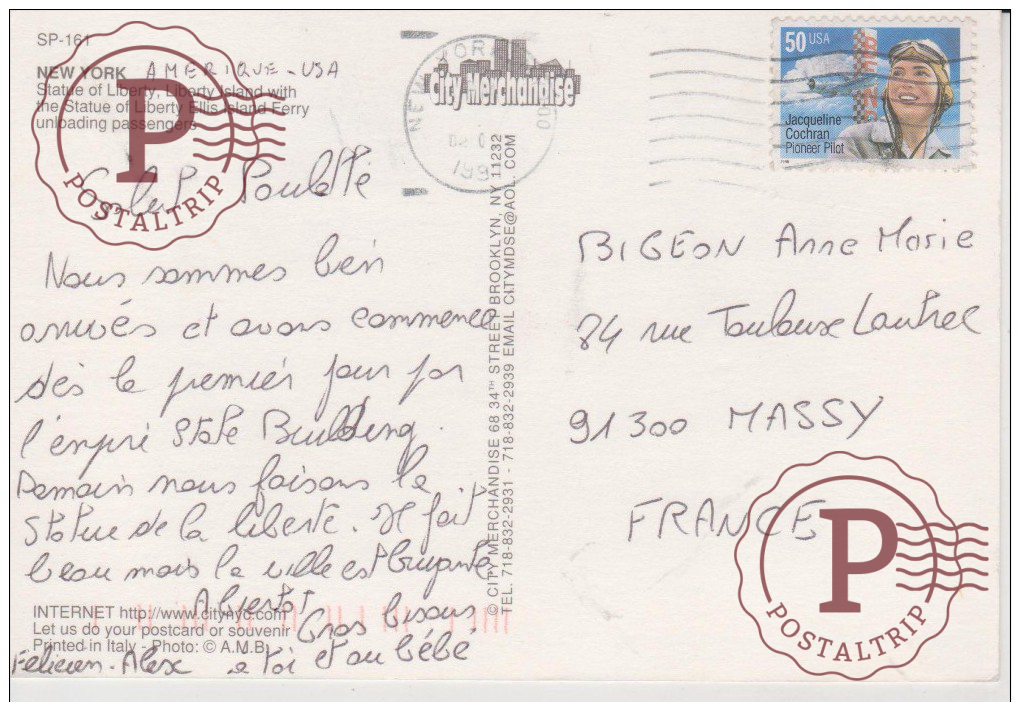 SP-161
NEW YORK AMERIQUE - USA
Statue of Liberty, Liberty Island with
the Statue of Liberty Ellis Island Ferry
unloading passengers
P
POSTALTRIP
Salut Poulette
Nous sommes bien
arrivés et avons commencé
dès le premier jour par
l'empire State Building.
Demain nous faisons la
statue de la liberté. Il fait
beau mais la ville est bruyante
Gros bisous
à toi et au bébé
Felicien - Alex
INTERNET http://www.citynyc.com
Let us do your postcard or souvenir
Printed in Italy - Photo: © A.M.B.
© CITY MERCHANDISE 68 34TH STREET BROOKLYN, NY 11232
TEL. 718-832-2931 - 718-832-2939 EMAIL CITYMDSE@AOL.COM
City Merchandise
NEW YORK
50 USA
Jacqueline
Cochran
Pioneer Pilot
BIGEON Anne Marie
84 rue Toulouse Lautrec
91300 MASSY
FRANCE
P
POSTALTRIP